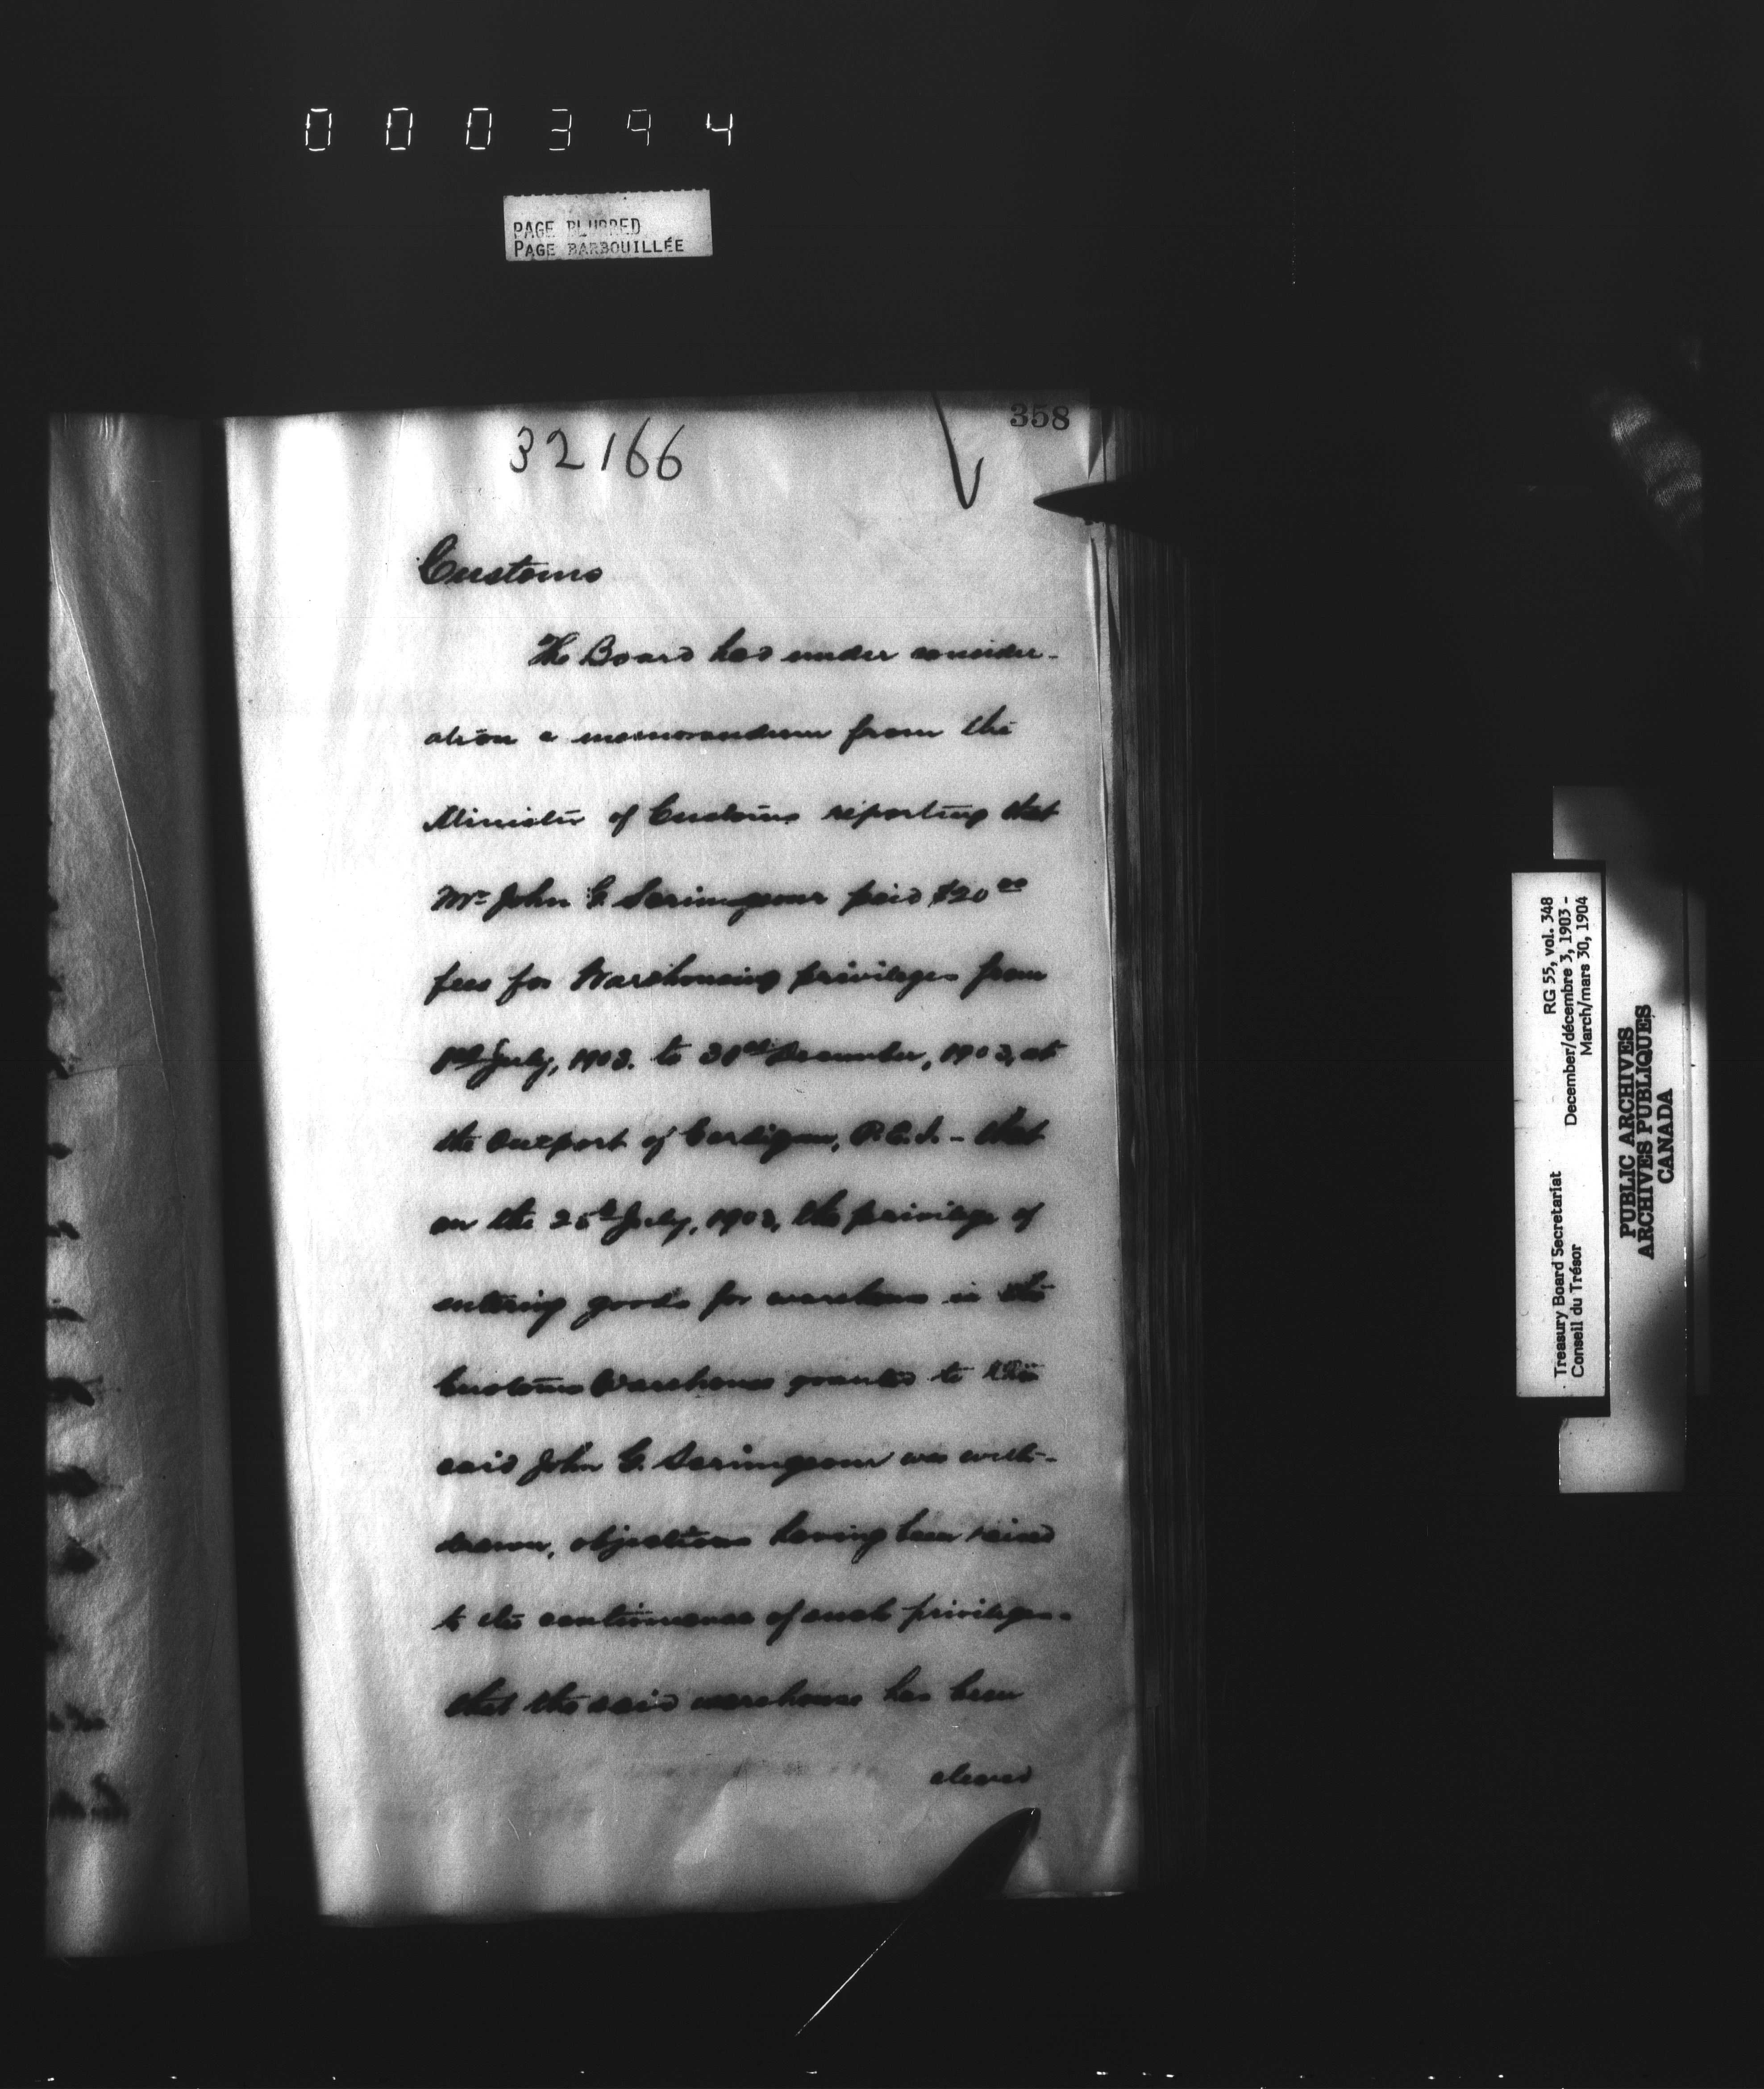 000394
PAGE BLURRED
PAGE BARBOUILLÉE
358
32166
Customs
The Board had under consider-
ation a memorandum from the
Minister of Customs reporting that
Mr. John G. Scrimgeour paid $20 00
fees for Warehousing privileges from
1st July, 1903. to 31st December, 1903, at
the Outport of Cardigan, P.E.I. - that
on the 25th July, 1903, the privilege of
entering goods for warehouse in the
Customs Warehouse granted to the
said John G. Scrimgeour was with-
drawn, objections having been raised
to the continuance of such privileges -
that the said warehouse has been
cleared
Treasury Board Secretariat RG 55, vol. 348
Conseil du Trésor December/décembre 3, 1903 -
March/mars 30, 1904
PUBLIC ARCHIVES
ARCHIVES PUBLIQUES
CANADA